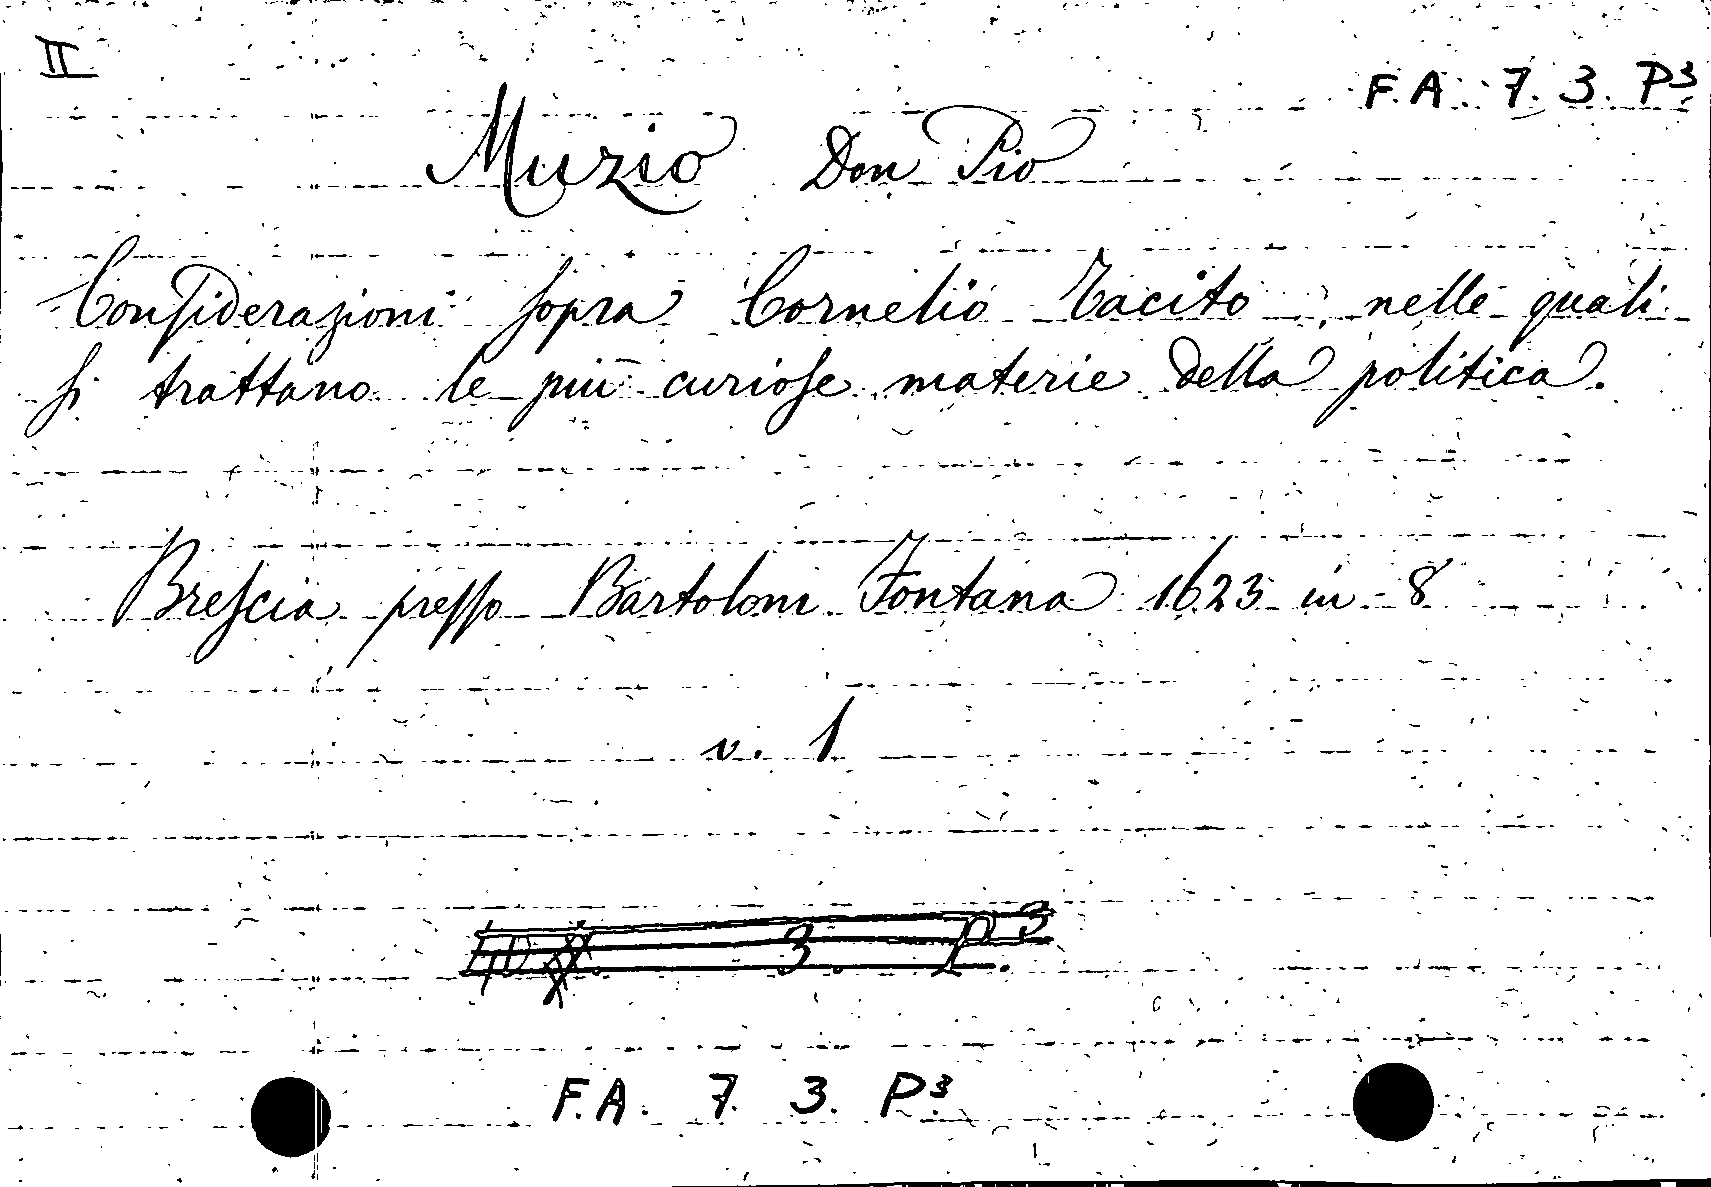 II
F.A. 7. 3. P³.
Muzio Don Pio
Conſiderazioni ſopra Cornelio Tacito, nelle quali
ſi trattano le più curioſe materie della politica.
Breſcia preſſo Bartolomi Fontana 1623 in 8
v. 1
3. P.³
F.A. 7. 3. P³.